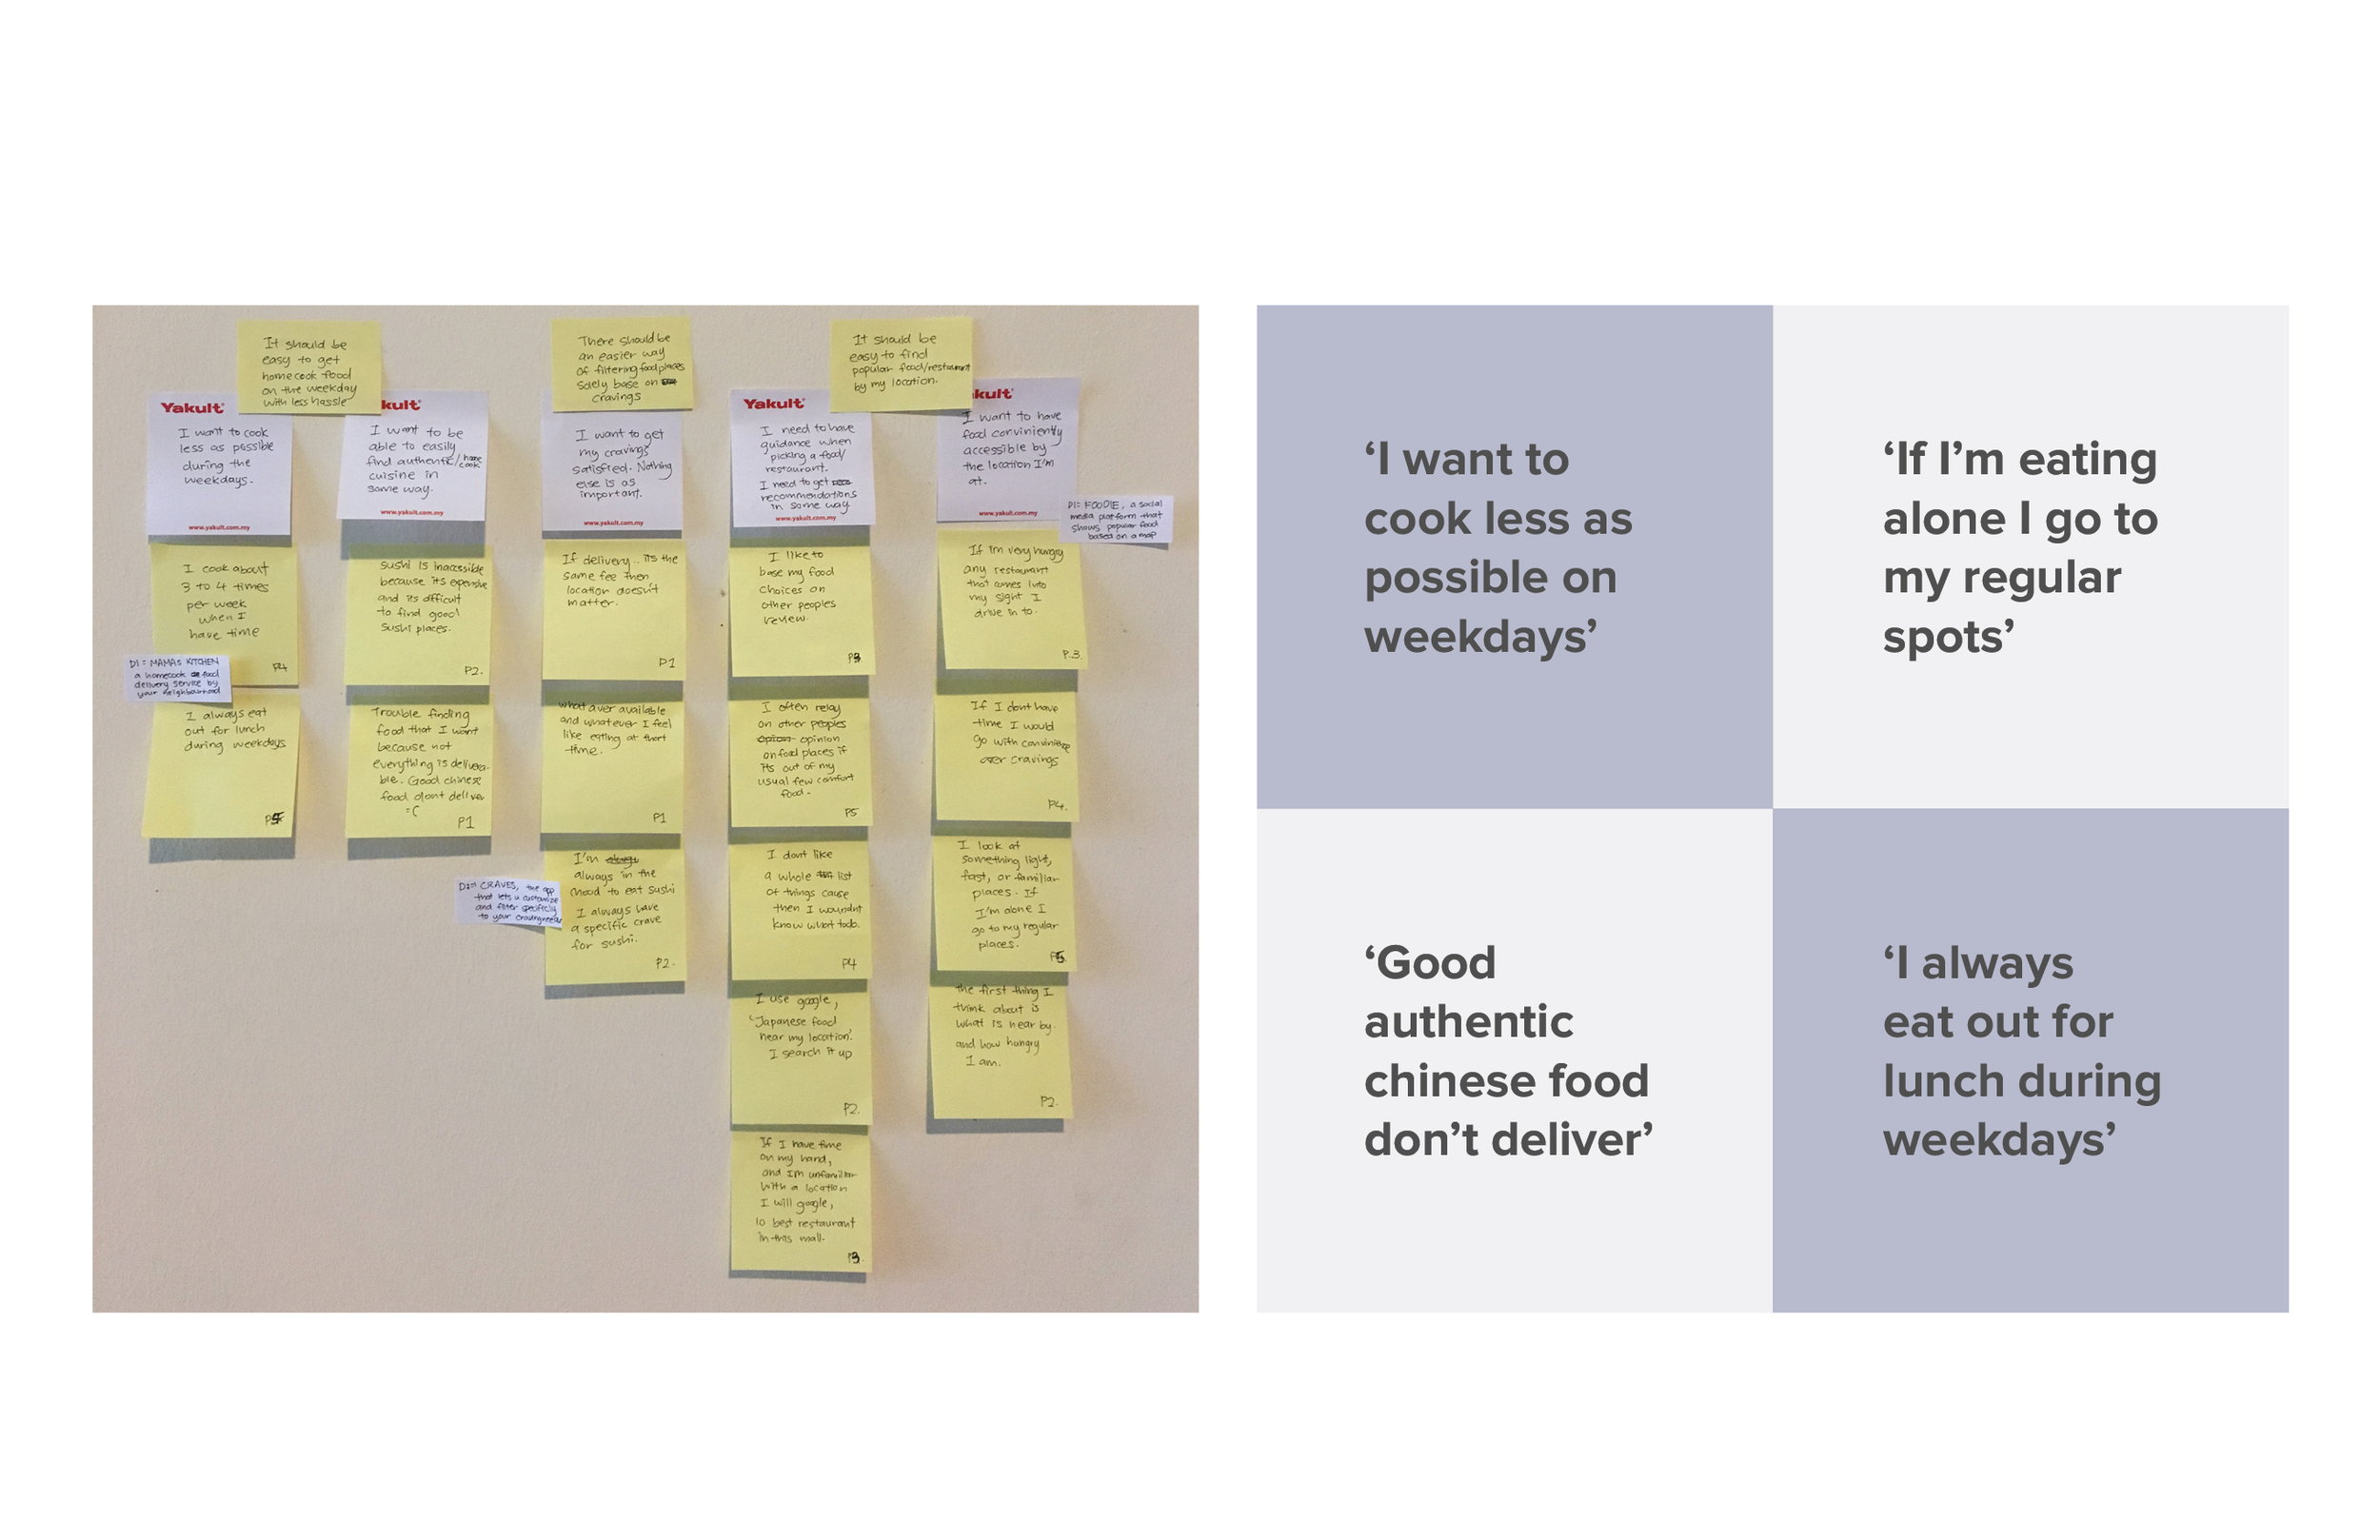 It should be
easy to get
homecook food
on the weekday
with less hassle
There should be
an easier way
of filtering foodplaces
solely base on
cravings
It should be
easy to find
popular food/restaurant
by my location.
Yakult
I want to cook
less as possible
during the
weekdays.
www.yakult.com.my
I cook about
3 to 4 times
per week
when I
have time
P4
D1= MAMAS KITCHEN
a homecook food
delivery service by
your neighbourhood
I always eat
out for lunch
during weekdays
kult
I want to be
able to easily
find authentic/home cook
cuisine in
some way.
www.yakult.com.my
sushi is inaccessible
because its expensive
and its difficult
to find good
sushi places.
P2.
Trouble finding
food that I want
because not
everything is delivera-
ble. Good chinese
food dont deliver
=(
P1
I want to get
my cravings
satisfied. Nothing
else is as
important.
www.yakult.com.my
If delivery.. its the
same fee then
location doesn't
matter.
P1
whataver available
and whatever I feel
like eating at that
time.
P1
I'm
always in the
mood to eat sushi
I always have
a specific crave
for sushi.
P2.
CRAVES, the app
that lets u customize
and filter specificly
to your
Yakult
I need to have
guidance when
picking a food/
restaurant.
I need to get
recommendations
in some way
www.yakult.com.my
I like to
base my food
choices on
other peoples
review.
P3
I often relay
on other peoples
opinion
on food places if
its out of my
usual few comfort
food.
P5
I dont like
a whole list
of things cause
then I wouldnt
know what to do.
P4
I use google,
'Japanese food
near my location'.
I search it up
P2.
If I have time
on my hand,
and Im unfamiliar
with a location
I will google,
10 best restaurant
in this mall.
P3.
kult
I want to have
food conviniently
accessible by
the location I'm
at.
www.yakult.com.my
D1= FOODIE, a social
media platform that
shows popular food
based on a map
If Im very hungry
any restaurant
that comes into
my sight I
drive in to.
P.3.
If I dont have
time I would
go with
over cravings
P4.
I look at
something light,
fast, or familiar
places. If
I'm alone I
go to my regular
places.
P5.
the first thing I
think about is
what is near by.
and how hungry
I am.
P2.
‘I want to
cook less as
possible on
weekdays’
‘If I’m eating
alone I go to
my regular
spots’
‘Good
authentic
chinese food
don’t deliver’
‘I always
eat out for
lunch during
weekdays’